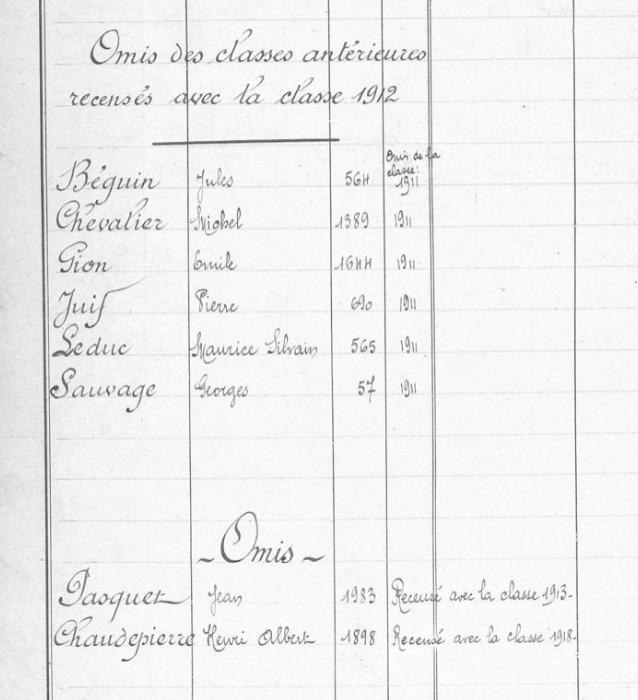 Omis des classes antérieures
recensés avec la classe 1912
Béguin Jules 564 Omis de la classe: 1911
Chevalier Michel 1389 1911
Gion Emile 1644 1911
Juif Pierre 690 1911
Leduc Maurice Silvain 565 1911
Sauvage Georges 57 1911
- Omis -
Pasquet Jean 1983 Recensé avec la classe 1913-
Chaudepierre Henri Albert 1898 Recensé avec la classe 1918-